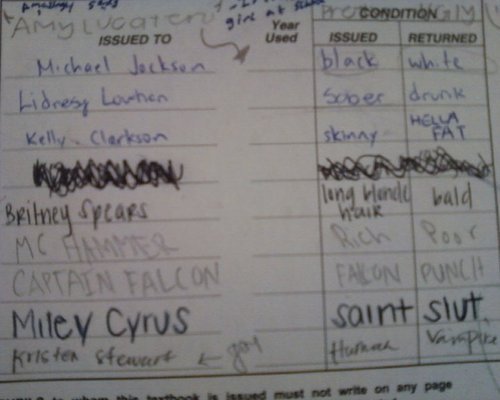 Amy Lucatero
girl at school
CONDITION
ISSUED TO Year Used ISSUED RETURNED
Michael Jackson black white
Lidnesy Lowhan Sober drunk
Kelly Clarkson skinny HELLA FAT
Britney Spears long blonde hair bald
MC HAMMER Rich Poor
CAPTAIN FALCON FALCON PUNCH
Miley Cyrus saint slut
Kristen Stewart gay Human Vampire
to whom this textbook is issued must not write on any page